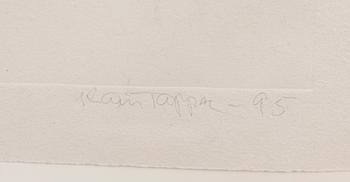 Kain Tapper - 95